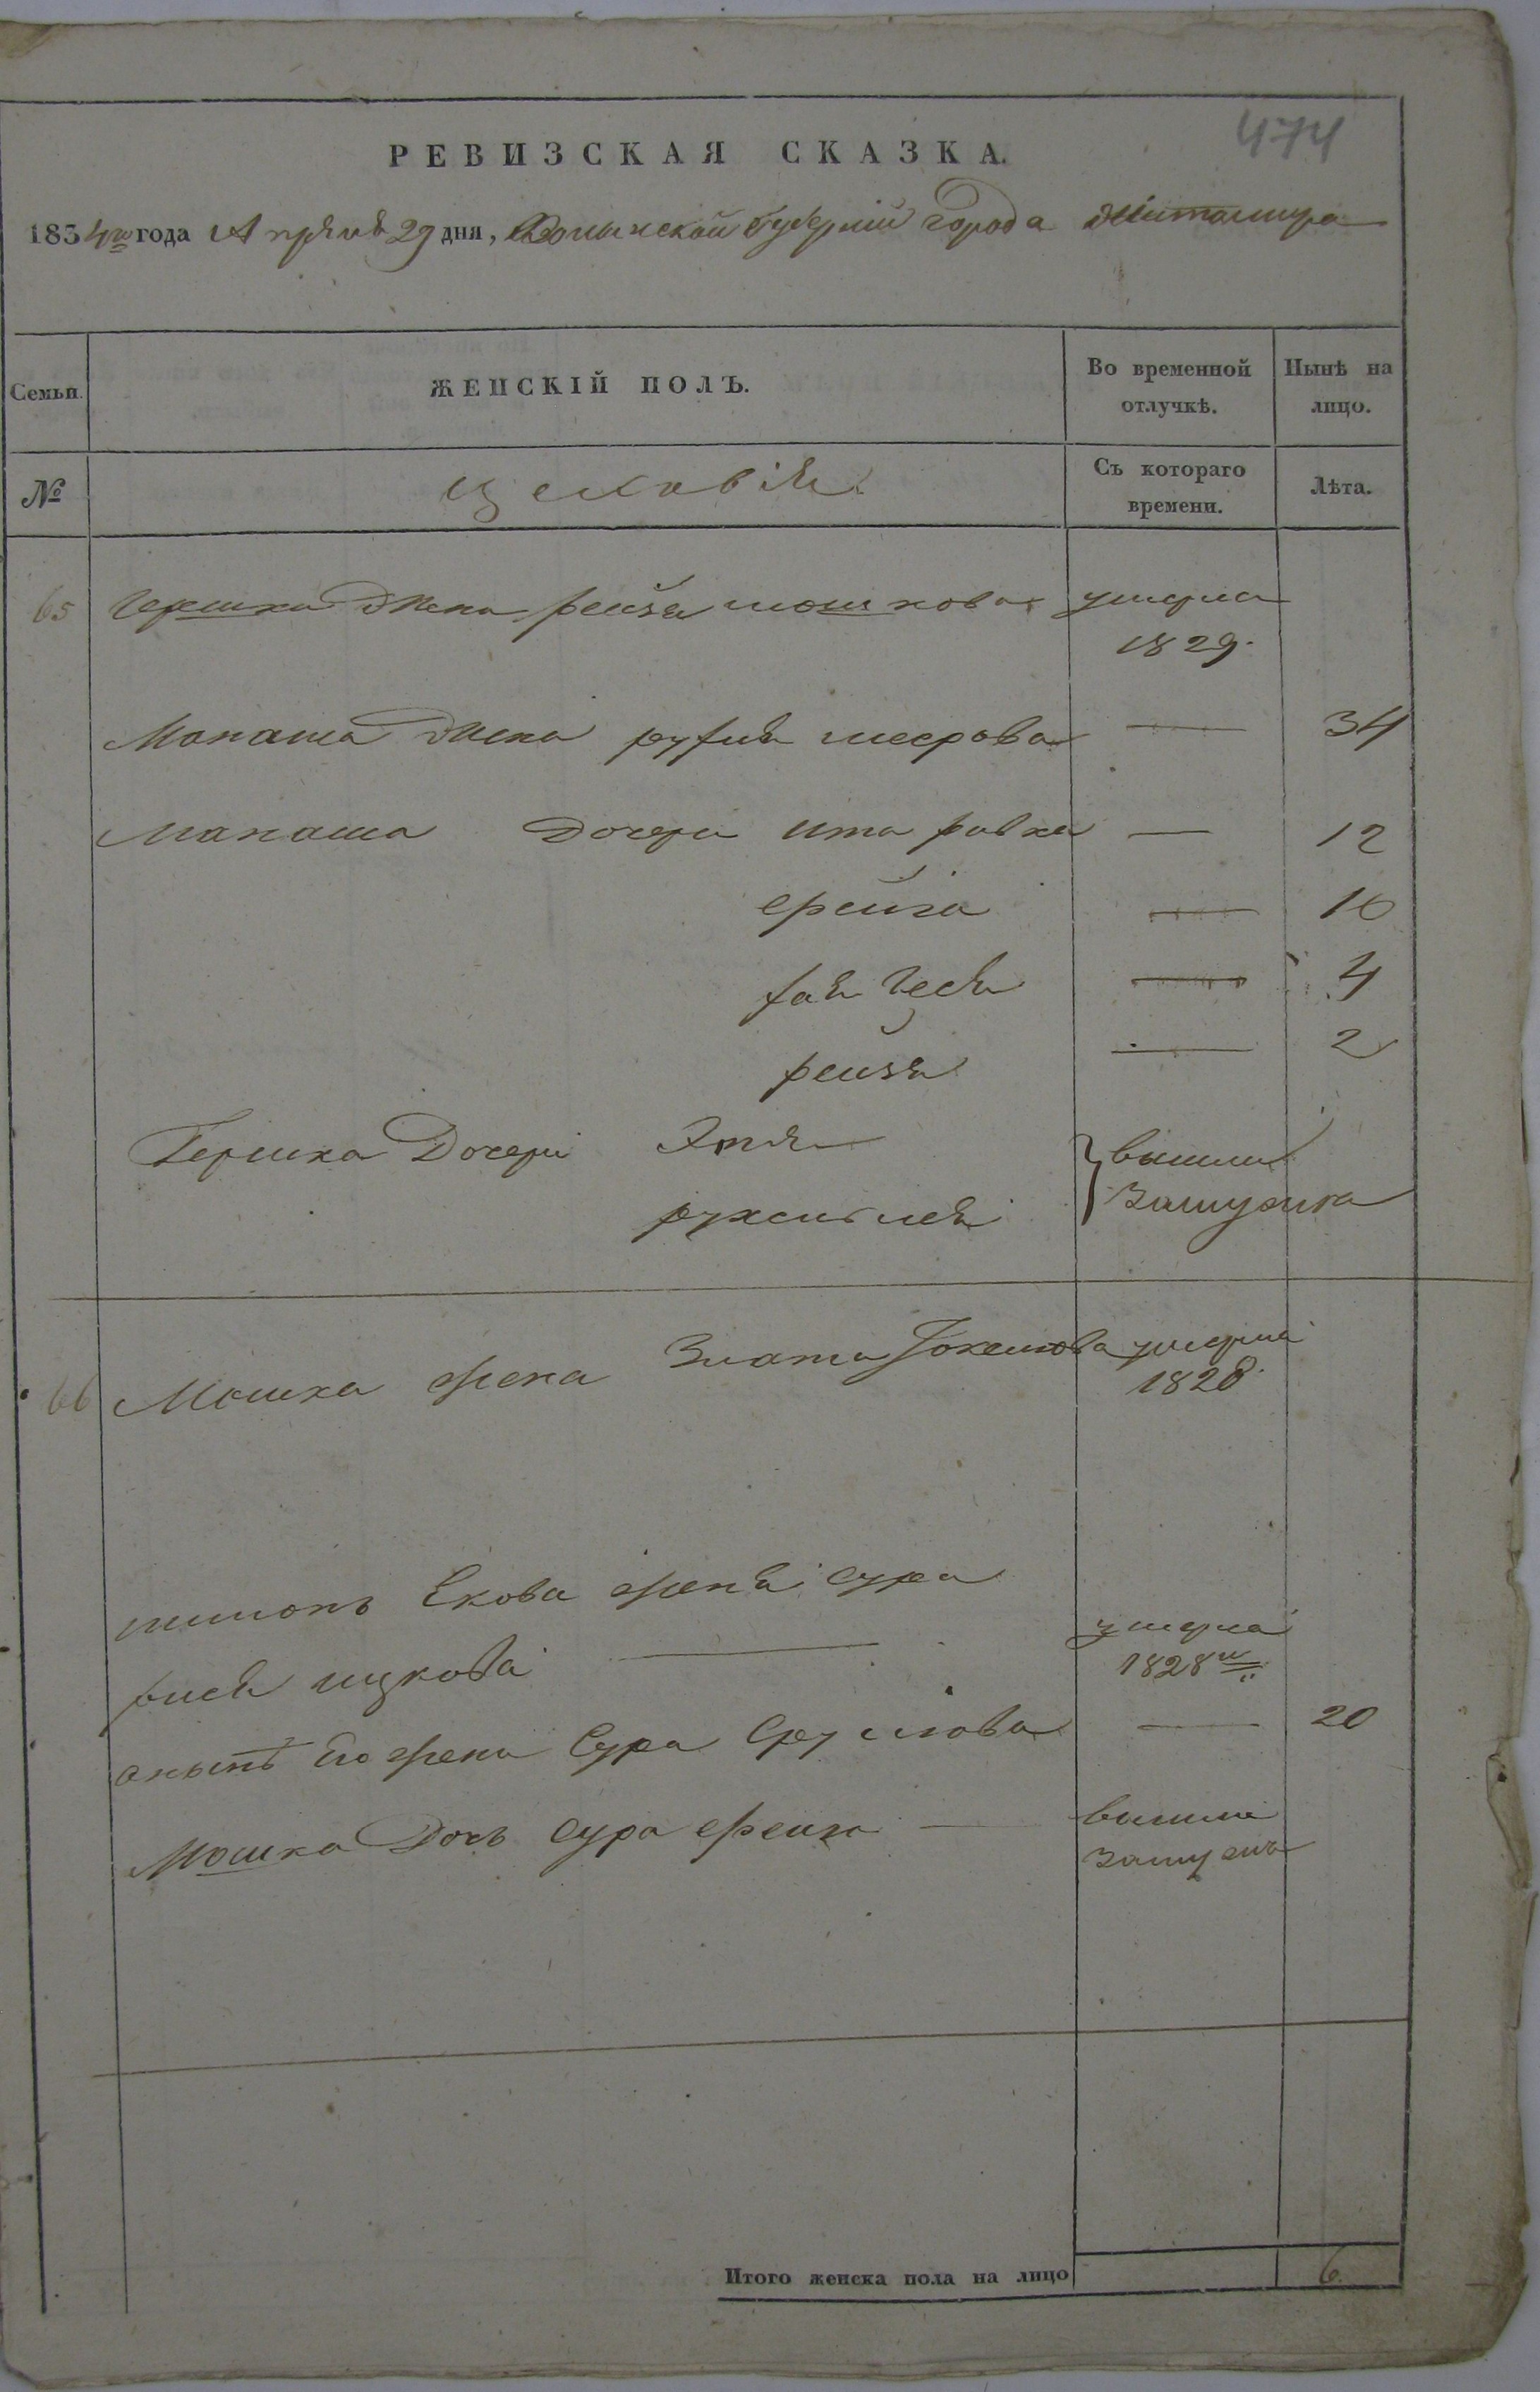 474
РЕВИЗСКАЯ СКАЗКА.
1834го года Апреля 29 дня, Волынской Губерніи города Житомира
Семьи. ЖЕНСКІЙ ПОЛЪ. Во временной отлучкѣ. Нынѣ на лицо.
№ Цеховія Съ котораго времени. Лѣта.
65 Гершка Жена рейзя мошкова умерла
1829.
Манаша Жена рухля меерова — 34
Манаша Дочери ита ривка — 12
фрейга — 10
хая Геся — 4
рейзя — 2
Гершка Дочери Этя вышли
замужа
66 Мошка жена Злата умерла
1828.
Екова жена сура
ицкова умерла
1828го
Его жена Сура Срулиова — 20
Мошка Дочь сура фейга — вышла
замужа
Итого женска пола на лицо 6.